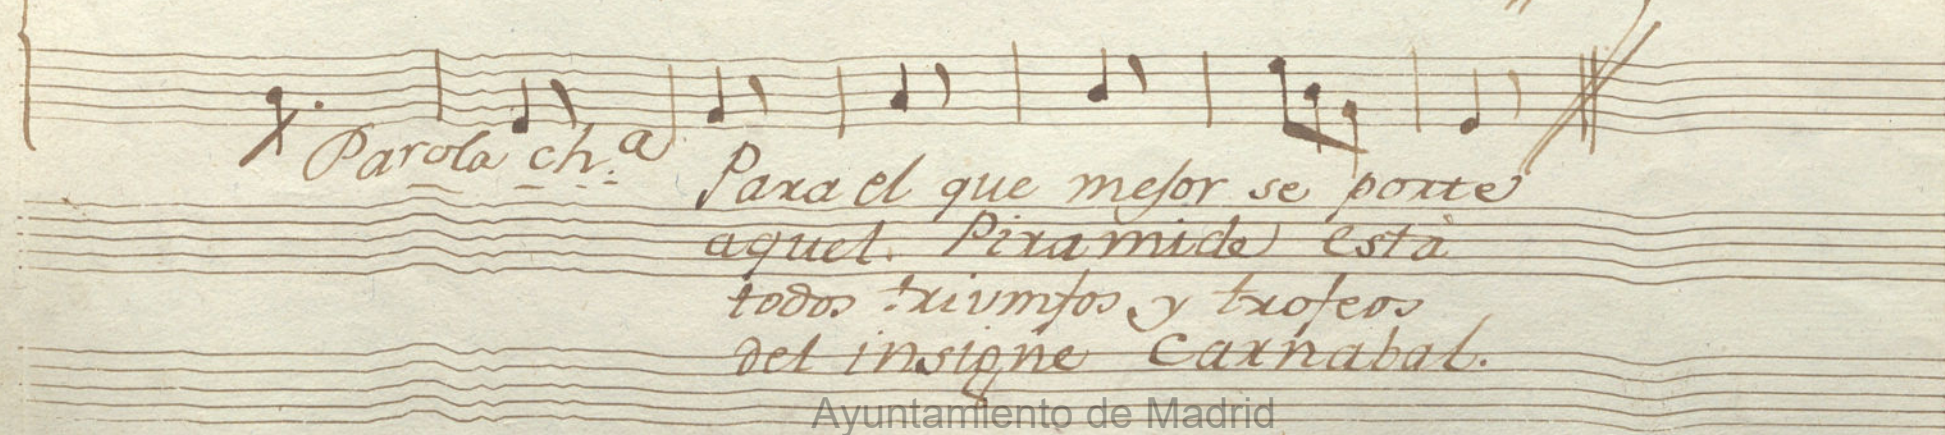 Parola ch.a
Para el que mejor se porte
aquel Piramide està
todos triumfos y trofeos
del insigne Carnabal.
Ayuntamiento de Madrid